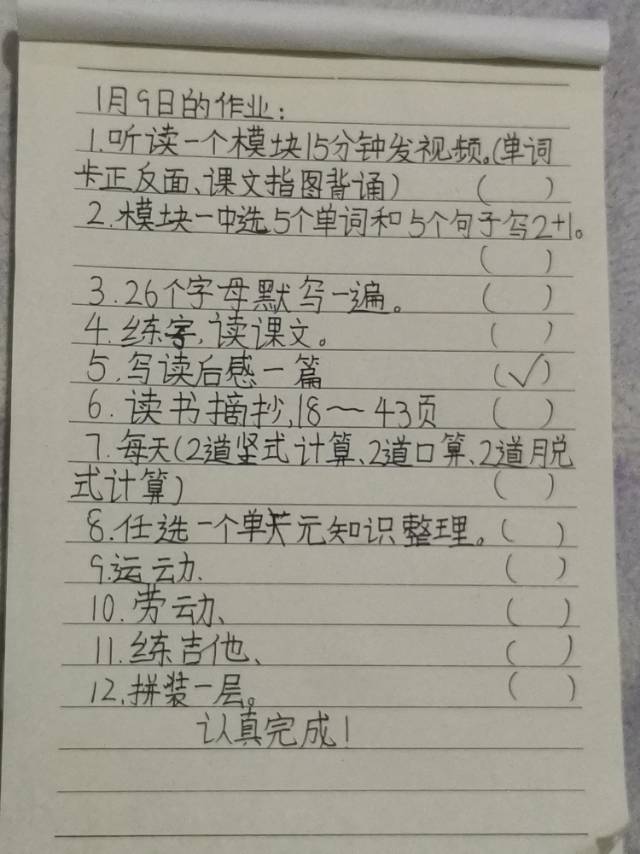 1月9日的作业：
1.听读一个模块15分钟发视频。(单词
卡正反面、课文指图背诵) ( )
2.模块一中选5个单词和5个句子写2+1。
( )
3.26个字母默写一遍。 ( )
4.练字,读课文。 ( )
5.写读后感一篇 (✓)
6.读书摘抄,18～43页 ( )
7.每天(2道竖式计算、2道口算、2道脱
式计算) ( )
8.任选一个单元知识整理。 ( )
9.运动、 ( )
10.劳动、 ( )
11.练吉他、 ( )
12.拼装一层。 ( )
认真完成!